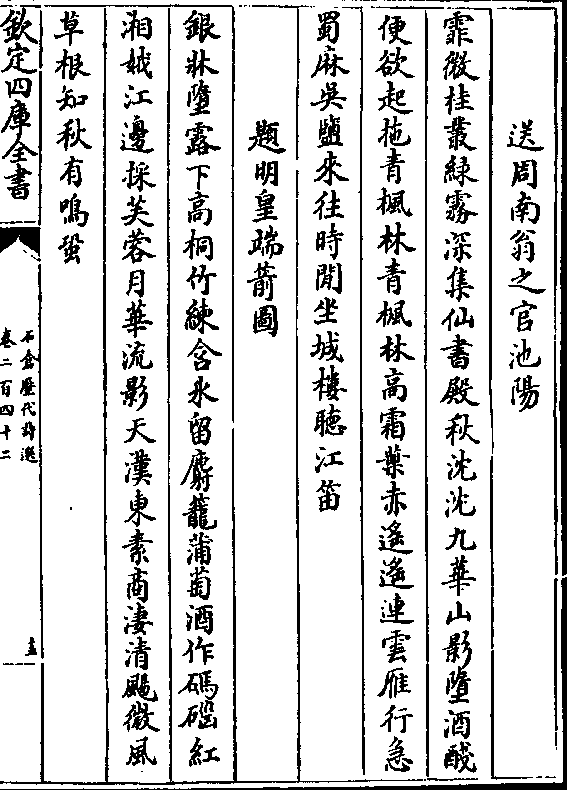 送周南翁之官池陽
霏微桂叢綠霧深集仙書殿秋沈沈九華山影墮酒醆
便欲起拖青楓林青楓林高霜葉赤遙遙連雲雁行急
蜀麻吳鹽來往時閒坐城樓聽江笛
題明皇端箭圖
銀牀墮露下高桐竹練含氷留麝籠蒲萄酒作碼磂紅
湘娥江邊採芙蓉月華流影天漢東素商淒清颸微風
草根知秋有鳴蛩
欽定四庫全書
石倉歷代詩選
卷二百四十二